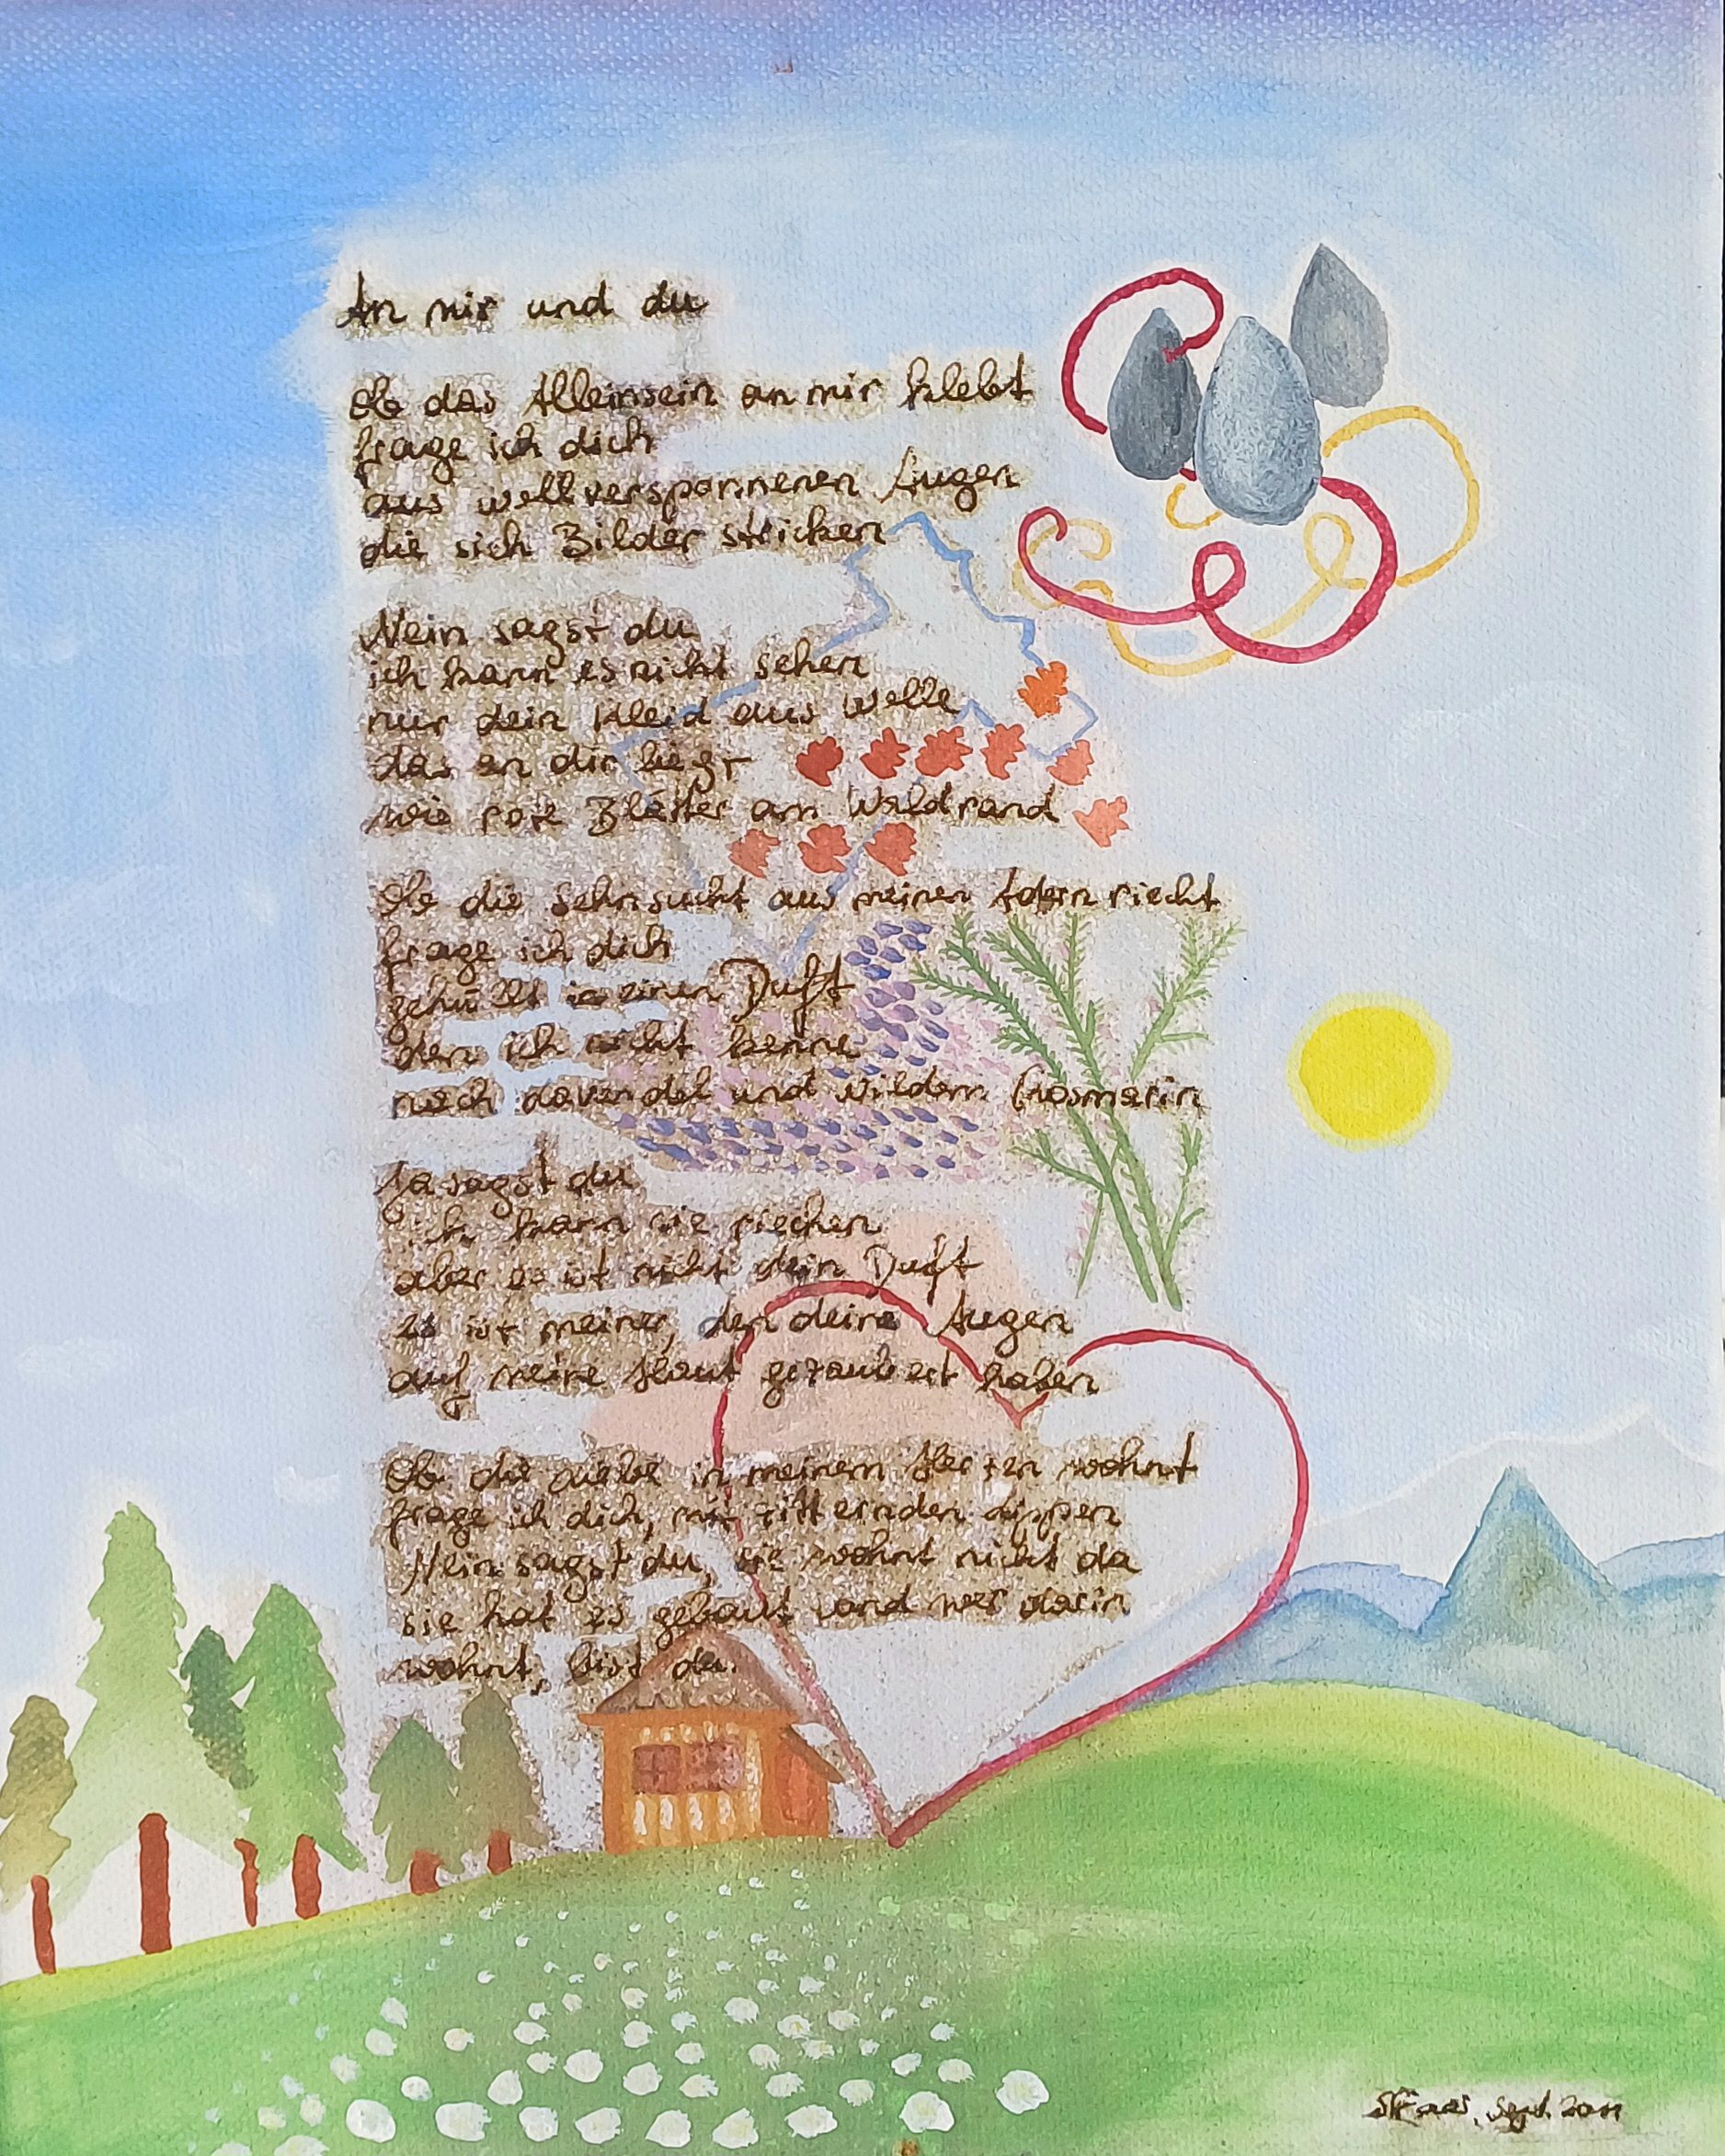 An mir und du
Ob das Alleinsein an mir klebt
frage ich dich
aus wollversponnenen Augen
die sich Bilder stricken
Nein sagst du
ich kann es nicht sehen
nur dein Kleid aus Wolle
das an dir liegt
wie rote Blätter am Waldrand
Ob die Sehnsucht aus meinen Adern riecht
frage ich dich
gehüllt in einen Duft
den ich nicht kenne
nach Lavendel und wildem Rosmarin
Ja sagst du
ich kann sie riechen
aber es ist nicht dein Duft
es ist meiner, den deine Augen
auf meine Haut gezaubert haben
Ob die Liebe in meinem Herzen wohnt
frage ich dich, mit zitternden Lippen
Nein sagst du, sie wohnt nicht da
sie hat es gebaut und wer darin
wohnt, bist du.
Sept. 2011